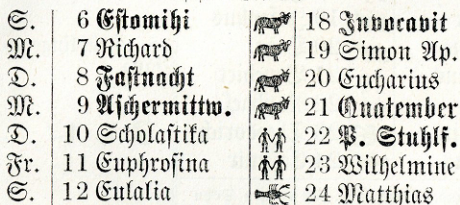 S. 6 Estomihi 18 Invocavit
M. 7 Richard 19 Simon Ap.
D. 8 Fastnacht 20 Eucharius
M. 9 Aschermittw. 21 Quatember
D. 10 Scholastika 22 P. Stuhlf.
Fr. 11 Euphrosina 23 Wilhelmine
S. 12 Eulalia 24 Matthias